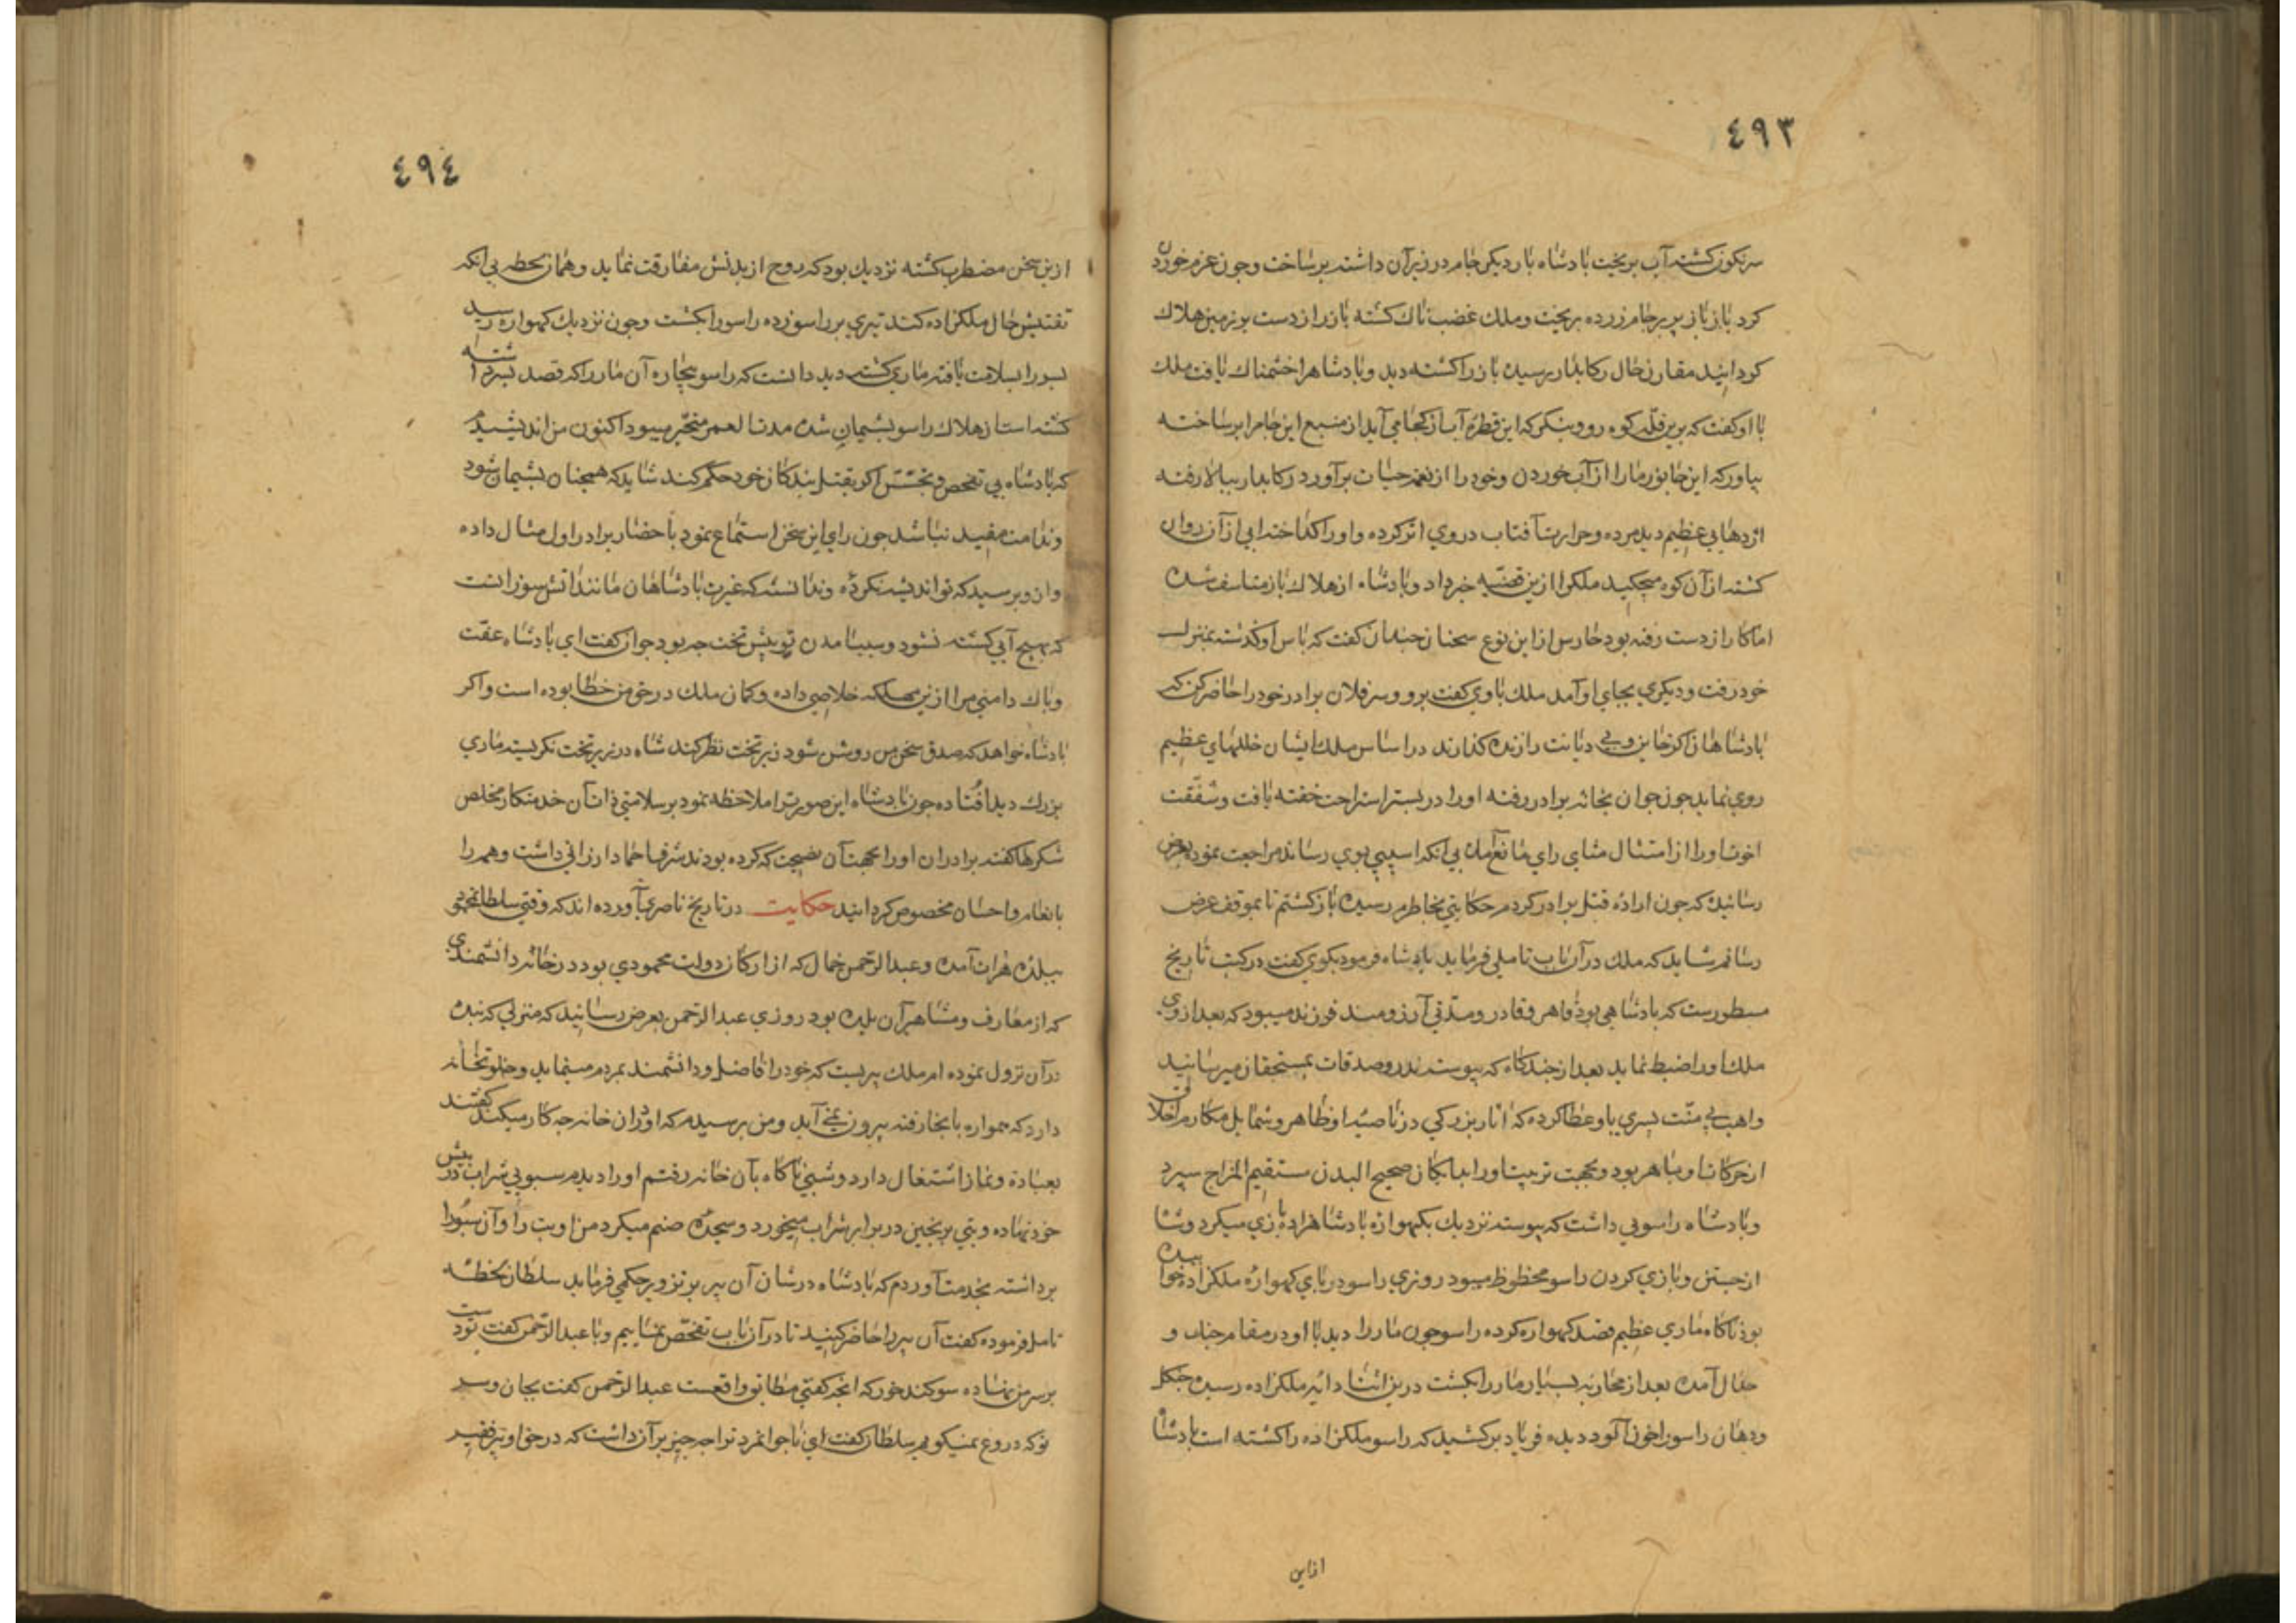 ٤٩٣
سرنكون كشته آب بريخت بادشاه بار ديكر جام در زير آن داشته برساخت وجون عزم خوردن
كرد باز باز پر بر جام زده بريخت وملك غضب ناك كشته باز را از دست بر زمين هلاك
كردانيد مقارن حال ركابدار رسيده باز را كشته ديد وبادشاه را خشمناك يافت ملك
با او كفت كه برين قله كوه رو وبنكر كه اين قطره آب از كجا مي آيد از منبع اين جام را برساخته
بياور كه اين جانور ما را از آب خوردن وخود را از نعمت حيات برآورد ركابدار ببالا رفته
اژدهايي عظيم ديد مرده وحرارت آفتاب در وي اثر كرده واورا كداخته ابي از آن روان
كشته از آن كوه ميچكيد ملك را ازين قضيه خبر داد وبادشاه از هلاك باز متاسف شده
اما كار از دست رفته بود حارس از اين نوع سخنان چندان كفت كه پاس او كذشته بمنزل
خود رفت وديكري بجاي او آمد ملك باوي كفت برو وسر فلان برادر خود را حاضر كن كه
بادشاهان اكر خاين وبي ديانت را زنده كذارند در اساس ملك ايشان خللهاي عظيم
روي نمايد جون جوان بخانه برادر رفته اورا در بستر استراحت خفته يافت وشفقت
اخوت اورا از امتثال مثاي راي مانع آمده بي آنكه اسيبي بوي رساند مراجعت نمود بعرض
رسانيد كه جون اراده قتل برادر كردم حكايتي بخاطرم رسيده باز كشتم تا بموقف عرض
رسانم شايد كه ملك در آن باب تاملي فرمايد بادشاه فرمود بكوي كفت در كتب تاريخ
مسطورست كه بادشاهي بود قاهر وقادر ومدتي آرزومند فرزند ميبود كه بعد از وي
ملك اورا ضبط نمايد بعد از چند كاه كه پيوسته نذر وصدقات بمستحقان ميرسانيد
واهب بي منت پسري باو عطا كرده كه اثار بزركي در ناصيه او ظاهر وشمايل مكارم اخلاق
از حركات او باهر بود وبجهت تربيت اورا بدايكان صحيح البدن مستقيم المزاج سپرد
وبادشاه راسويي داشت كه پيوسته نزديك بكهواره بادشاهزاده بازي ميكرد وشا
از جستن وبازي كردن راسو محظوظ ميبود روزي راسو در پاي كهواره ملكزاده خوابيده
بود ناكاه ماري عظيم قصد كهواره كرده راسو جون مار را ديد با او در مقام جنك و
جدال آمده بعد از محاربه بسيار مار را بكشت درين اثنا دايه ملكزاده رسيده جنكل
ودهان راسو را خون آلود ديده فرياد بركشيد كه راسو ملكزاده را كشته است بادشاه
ازاين
٤٩٤
ازين سخن مضطرب كشته نزديك بود كه روح از بدنش مفارقت نمايد وهمان لحظه بي آنكه
تفتيش حال ملكزاده كند تيري بر راسو زده راسو را بكشت وجون نزديك كهواره رسيد
پسر را بسلامت يافته ماري كشته ديد دانست كه راسو بيچاره آن مار را كه قصد پسر داشته
كشته است از هلاك راسو پشيمان شده مدت العمر متحير ميبود اكنون من انديشيدم
كه بادشاه بي تفحص وتجسس اكر بقتل بندكان خود حكم كند شايد كه همچنان پشيمان شود
وندامت مفيد نباشد جون راي اين سخن استماع نمود باحضار برادر اول مثال داده
وازو پرسيد كه تو انديشه نكرده وندانسته كه غيرت بادشاهان مانند آتش سوزانست
كه بهيچ آبي كشته نشود وسبب آمدن تو پيش تخت چه بود جوان كفت اي بادشاه عفت
وپاك دامني مرا ازين مهلكه خلاصي داده وكمان ملك در حق من خطا بوده است واكر
بادشاه خواهد كه صدق سخن من روشن شود زير تخت نظر كند شاه در زير تخت نكريسته ماري
بزرك ديد افتاده جون بادشاه اين صورت را ملاحظه نمود بر سلامتي ذات آن خدمتكار مخلص
شكرها كفته برادران اورا بجهت آن نصيحت كه كرده بودند شرف احماد ارزاني داشت وهمه را
بانعام واحسان مخصوص كردانيد حكايت در تاريخ ناصري آورده اند كه وقتي سلطان محمود
ببلده هرات آمده وعبد الرحمن خال كه از اركان دولت محمودي بود در خانه دانشمندي
كه از معارف ومشاهير آن بلده بود روزي عبد الرحمن بعرض رسانيد كه منزلي كه بنده
در آن نزول نموده ام ملك پيريست كه خود را فاضل ودانشمند بمردم مينمايد وخلوتخانه
دارد كه همواره بانجا رفته بيرون نمي آيد ومن پرسيدم كه او در آن خانه چه كار ميكند كفتند
بعبادة ونماز اشتغال دارد وشبي ناكاه بآن خانه رفتم اورا ديدم سبويي شراب در پيش
خود نهاده وبتي برنجين در برابر شراب ميخورد وسجده صنم ميكرد من او بت را وآن سبو را
برداشته بخدمت آوردم كه بادشاه در شان آن پير پر تزوير حكمي فرمايد سلطان لحظه
تامل فرموده كفت آن پير را حاضر كنيد تا در آن باب تفحص نماييم وبا عبد الرحمن كفت دست تو
بر سر من نهاده سوكند خور كه انچه كفتي مطابق واقعست عبد الرحمن كفت بجان وسر
تو كه دروغ نميكويم سلطان كفت اي ناجوانمرد ترا چه چيز بر آن داشت كه در حق او پير فقير